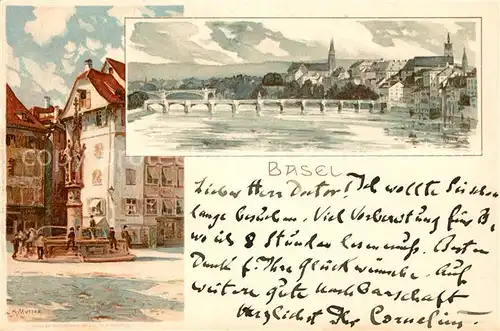 BASEL
Lieber Herr Doctor! Ich wollte Sie schon
lange besuchen. Viel Vorbereitung für B,
wo ich 8 Stunden lesen muss. Besten
Dank f. Ihre Glückwünsche. Auf
weitere gute Nachbarschaft
Herzlichst Ihr Cornelius.
K. MUTTER